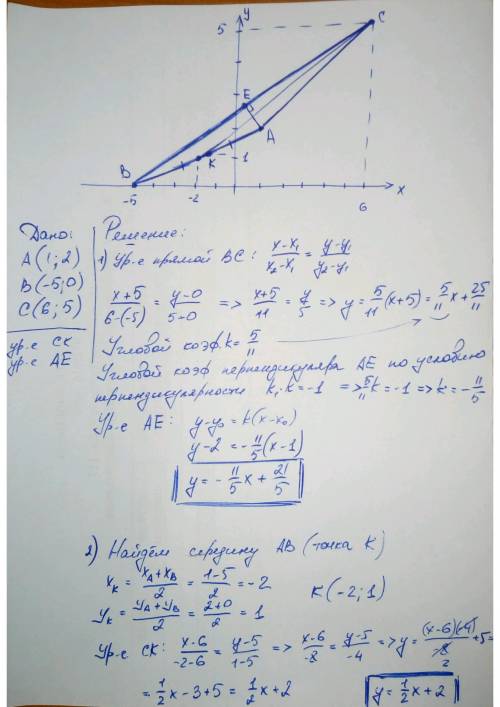 y
5
C
E
A
B
K
1
-5
-2
6
x
Дано:
A(1; 2)
B(-5; 0)
C(6; 5)
ур-е CK
ур-е AE
Решение:
1) Ур-е прямой BC: (x-x₁)/(x₂-x₁) = (y-y₁)/(y₂-y₁)
(x+5)/(6-(-5)) = (y-0)/(5-0) => (x+5)/11 = y/5 => y = 5/11 (x+5) = 5/11 x + 25/11
Угловой коэф. k = 5/11
Угловой коэф перпендикуляра AE по условию
перпендикулярности k₁·k = -1 => 5/11 k = -1 => k = -11/5
Ур-е AE: y-y₀ = k(x-x₀)
y-2 = -11/5 (x-1)
y = -11/5 x + 21/5
2) Найдём середину AB (точка K)
x_K = (x_A+x_B)/2 = (1-5)/2 = -2
K(-2; 1)
y_K = (y_A+y_B)/2 = (2+0)/2 = 1
Ур-е CK: (x-6)/(-2-6) = (y-5)/(1-5) => (x-6)/-8 = (y-5)/-4 => y = (x-6)(-4)/-8 2 + 5 =
= 1/2 x - 3 + 5 = 1/2 x + 2
y = 1/2 x + 2